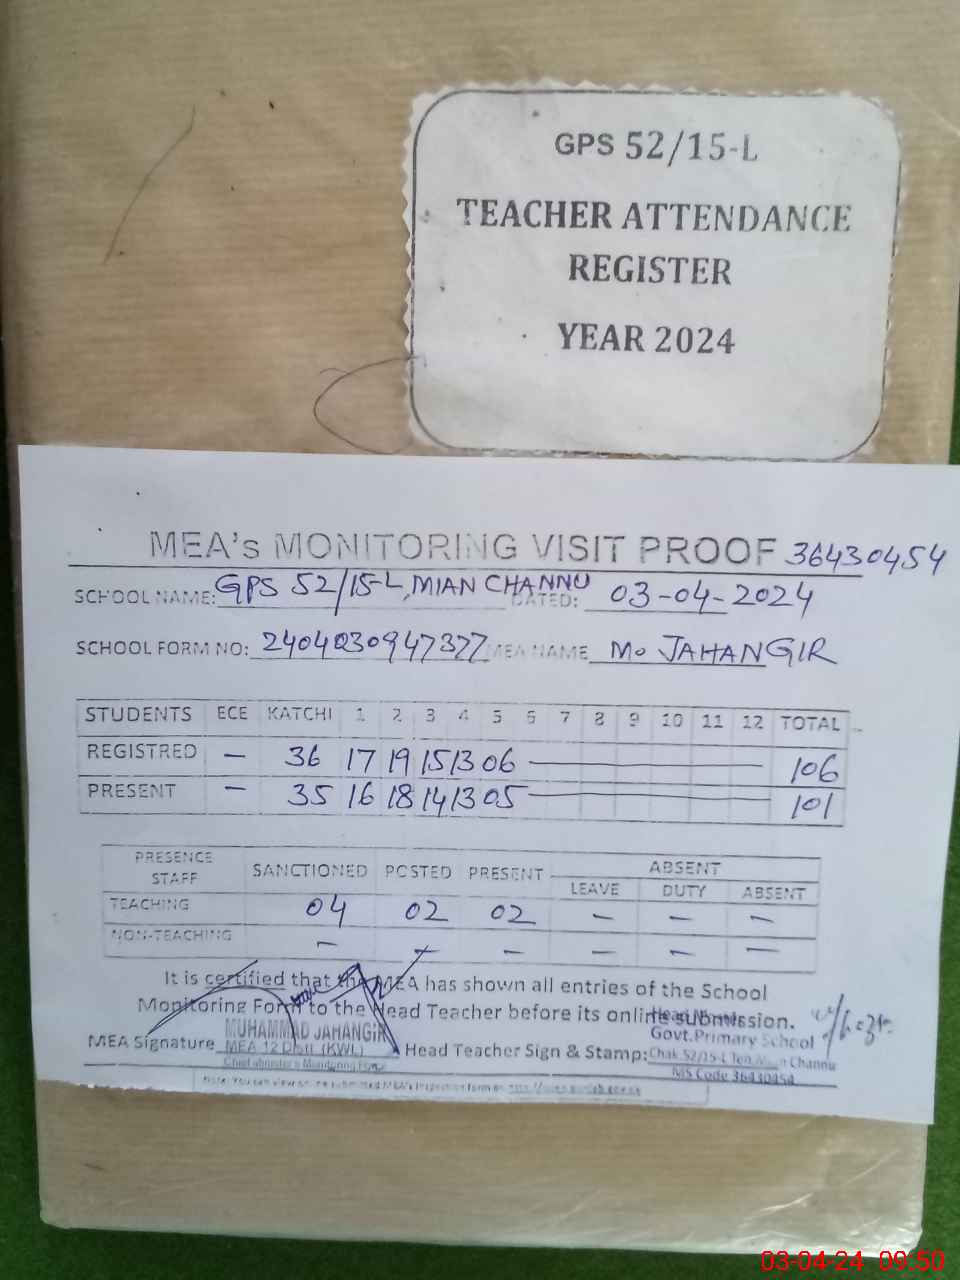 GPS 52/15-L
TEACHER ATTENDANCE
REGISTER
YEAR 2024
MEA's MONITORING VISIT PROOF 36430454
SCHOOL NAME: GPS 52/15-L, MIAN CHANNU DATED: 03-04-2024
SCHOOL FORM NO: 2404030947377 MEA NAME Mo JAHANGIR
STUDENTS ECE KATCHI 1 2 3 4 5 6 7 8 9 10 11 12 TOTAL
REGISTRED — 36 17 19 15 13 06 — 106
PRESENT — 35 16 18 14 13 05 — 101
PRESENCE STAFF SANCTIONED POSTED PRESENT ABSENT
LEAVE DUTY ABSENT
TEACHING 04 02 02 — — —
NON-TEACHING — — — — — —
It is certified that the MEA has shown all entries of the School
Monitoring Form to the Head Teacher before its online submission.
MEA Signature MUHAMMAD JAHANGIR
MEA 12 Distt. (KWL)
Head Teacher Sign & Stamp:
Govt.Primary School
Chak 52/15-L Channu
MS Code 36430454
03-04-24 09:50